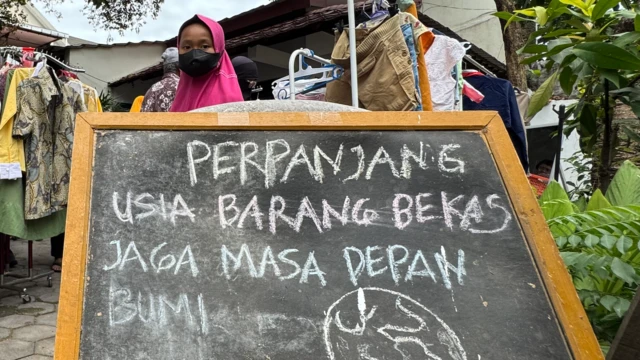 PERPANJANG
USIA BARANG BEKAS
JAGA MASA DEPAN
BUMI